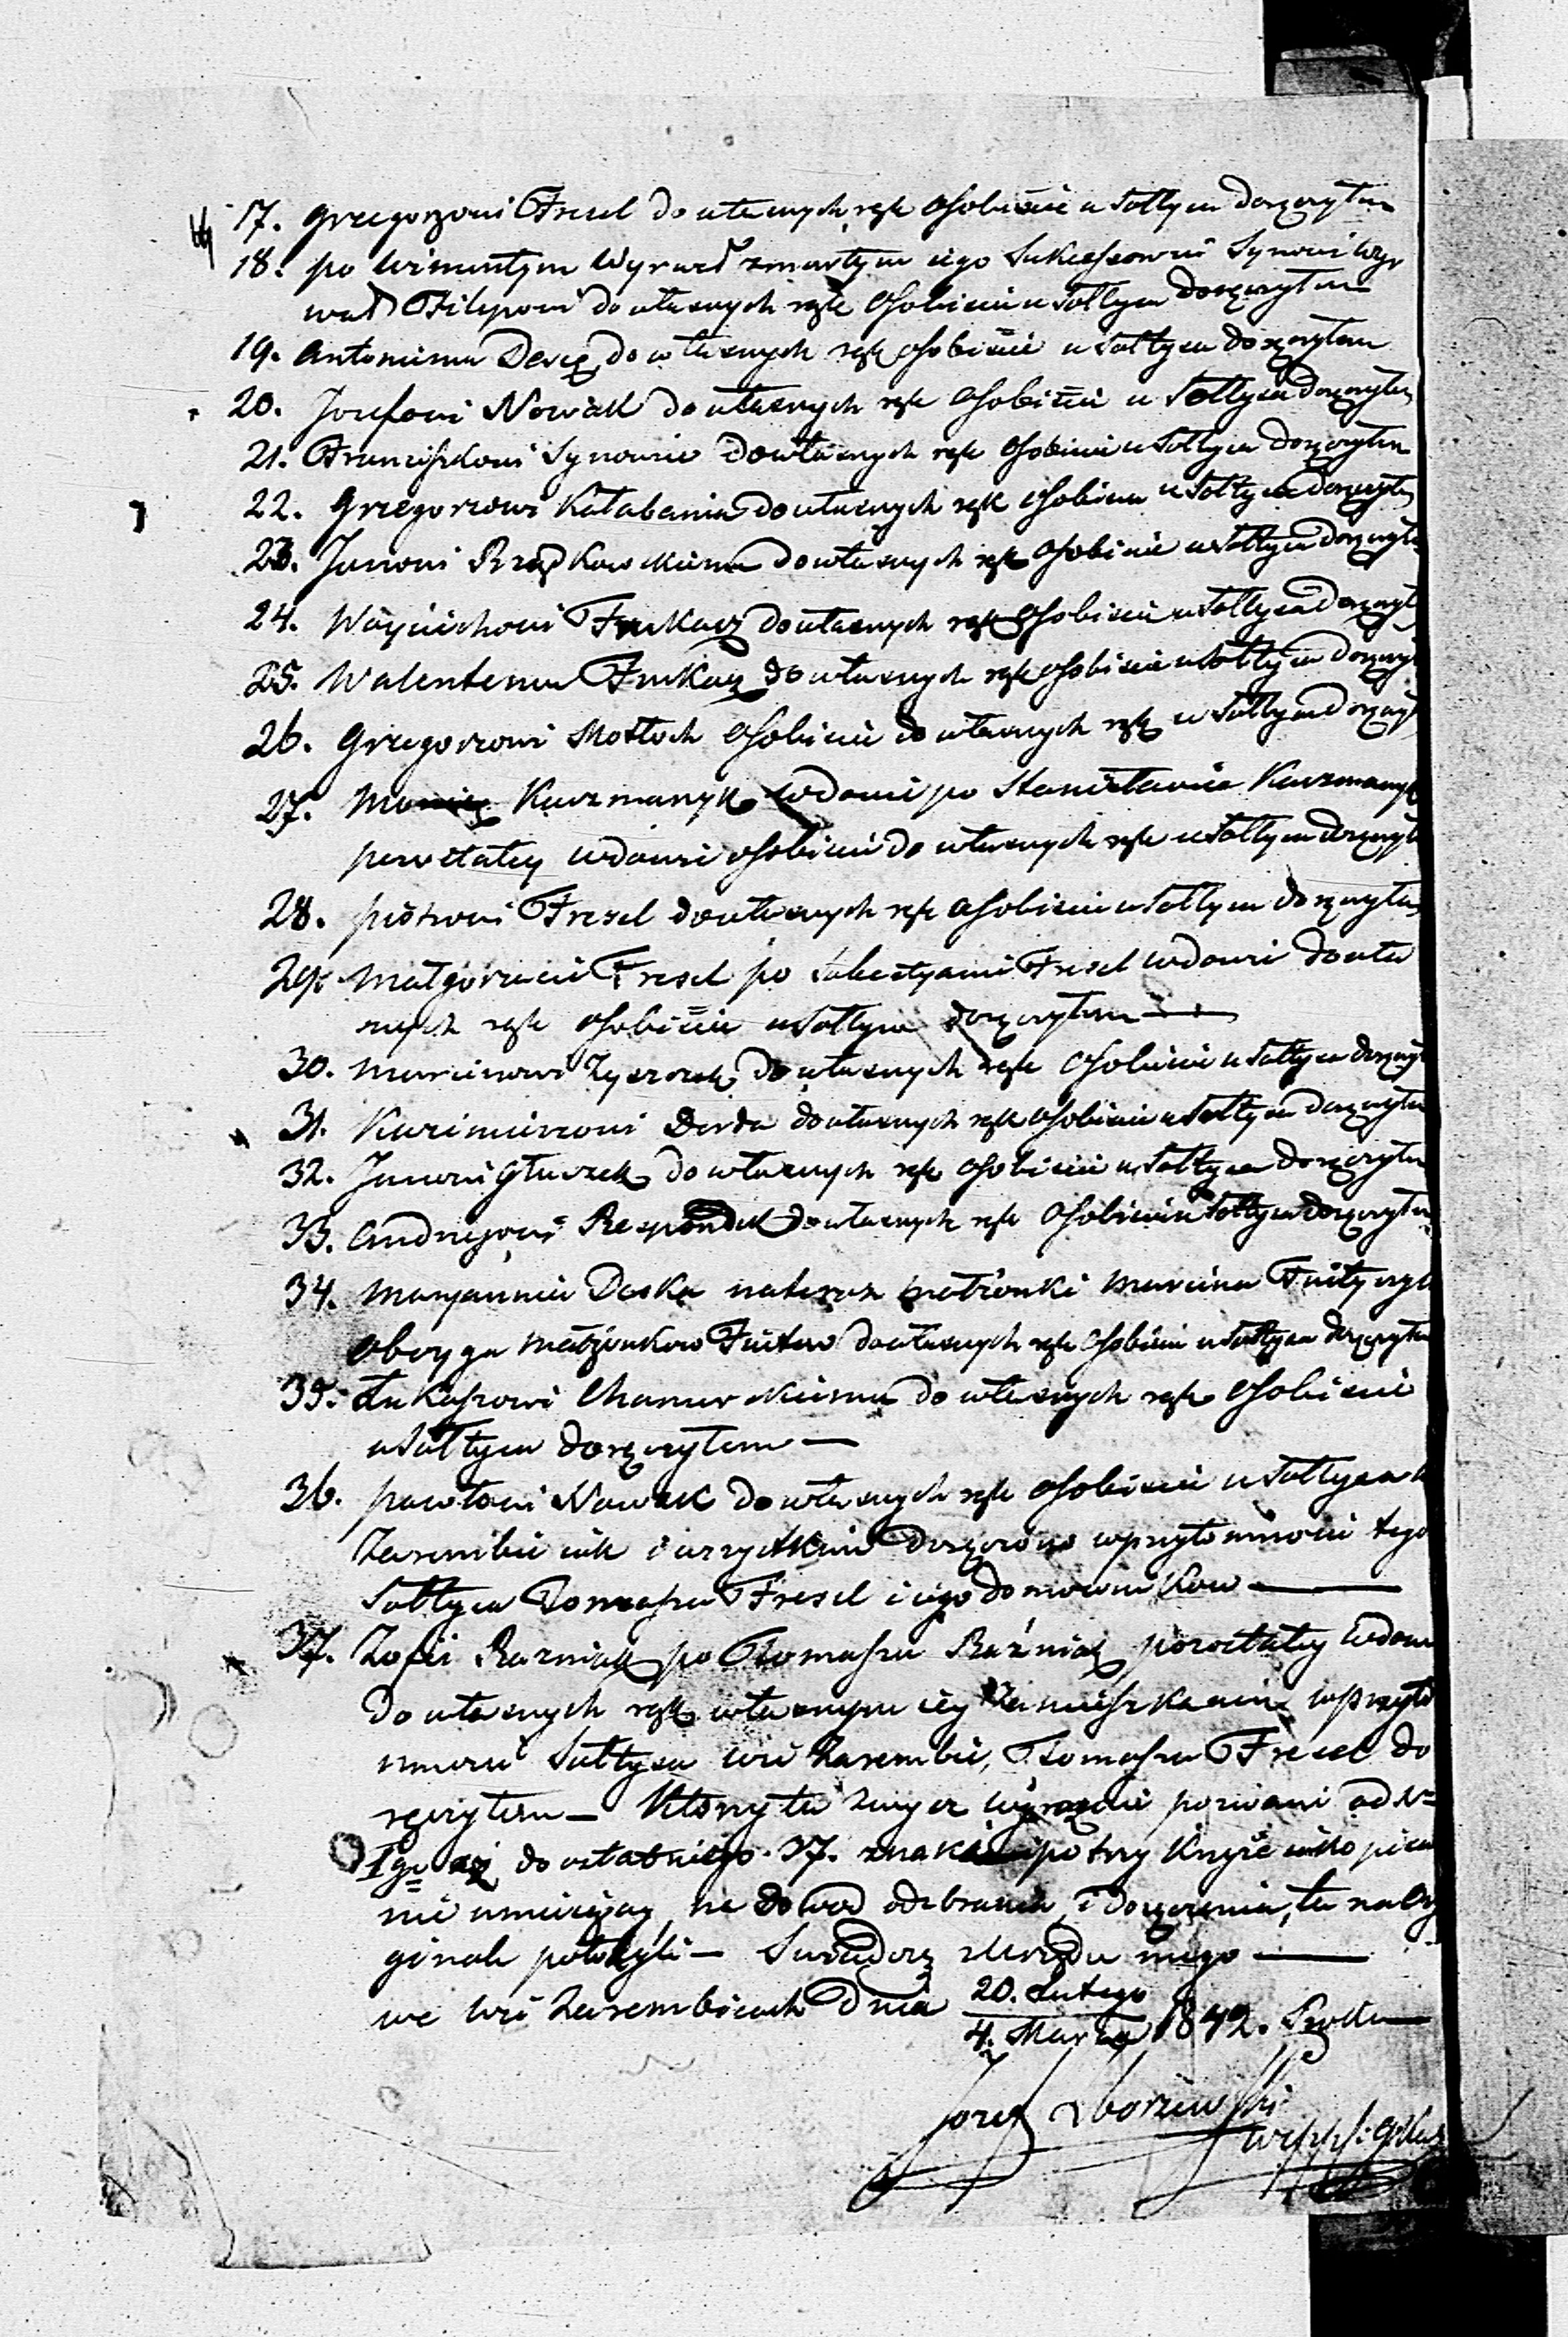 17. Grzegorzowi Fresel do własnych rąk osobiście u Sołtysa doręczyłem
18. po Wincentym Wyrwał zmarłym iego Sukcessorowi Synowi Wyr
wał Filipowi do własnych rąk osobiście u Sołtysa doręczyłem
19. Antoniemu do własnych rąk osobiście u Sołtysa doręczyłem
20. Józefowi Nowak do własnych rąk osobiście u Sołtysa doręczyłem
21. Franciszkowi do własnych rąk osobiście u Sołtysa doręczyłem
22. Grzegorzowi Kałabania do własnych rąk osobiście u Sołtysa doręczyłem
23. Janowi do własnych rąk osobiście u Sołtysa doręczyłe
24. Woyciechowi do własnych rąk osobiście u Sołtysa doręczył
25. Walentemu do własnych rąk osobiście u Sołtysa doręczył
26. Grzegorzowi Motłoch osobiście do własnych rąk u Sołtysa doręczył
27. Kaczmarzyk wdowie po Stanisławie Kaczmarzyk
pozostałey wdowie osobiście do własnych rąk u Sołtysa doręczył
28. Piotrowi Fresel do własnych rąk osobiście u Sołtysa doręczyłem
29. Małgorzacie Fresel po Sebestyanie Fresel wdowie do wła
snych rąk osobiście u Sołtysa doręczyłem —
30. Marcinowi do własnych rąk osobiście u Sołtysa doręczył
31. Kazimierzowi Dorda do własnych rąk osobiście u Sołtysa doręczyłem
32. Janowi Głuszek do własnych rąk osobiście u Sołtysa doręczyłem
33. Andrzejowi Respondek do własnych rąk osobiście u Sołtysa doręczyłem
34. Maryannie Deska na teraz małżonki Marcina
oboyga małżonków do własnych rąk osobiście u Sołtysa doręczyłem
35. Łukaszowi do własnych rąk osobiście
u Sołtysa doręczyłem —
36. Pawłowi Nowak do własnych rąk osobiście u Sołtysa
Zarembie iak i wszystkim w przytomności tego
Sołtysa Tomasza Fresel i iego domowników —
37. Zofii Raźniak po Tomaszu Raźniak pozostałey wdow
do własnych rąk w własnym iey zamieszkaniu w przyto
mności Sołtysa wsi Zarembic, Tomasza Fresel do
ręczyłem — Którzy tu wyrażeni pozwani od Nr
1go aż do ostatniego 37. znaki po trzy Krzyże iako pisać
nie umieiący na dowód odebrania, i doręczenia, tu na Ory
ginale położyli — Świadczę z Urzędu mego —
we wsi Zarembicach dnia 20. Lutego
4. Marca 1842. Roku —
Józef